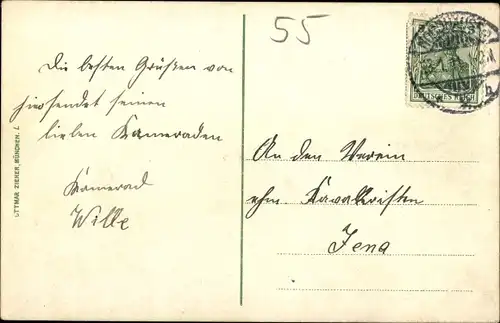 55
Die besten Grüßen von
hir sendet seinen
lieben Kameraden
Kamerad
Wille
An den Verein
ehm Kavalleristen
Jena
DEUTSCHES REICH
OTTMAR ZIEHER, MÜNCHEN.